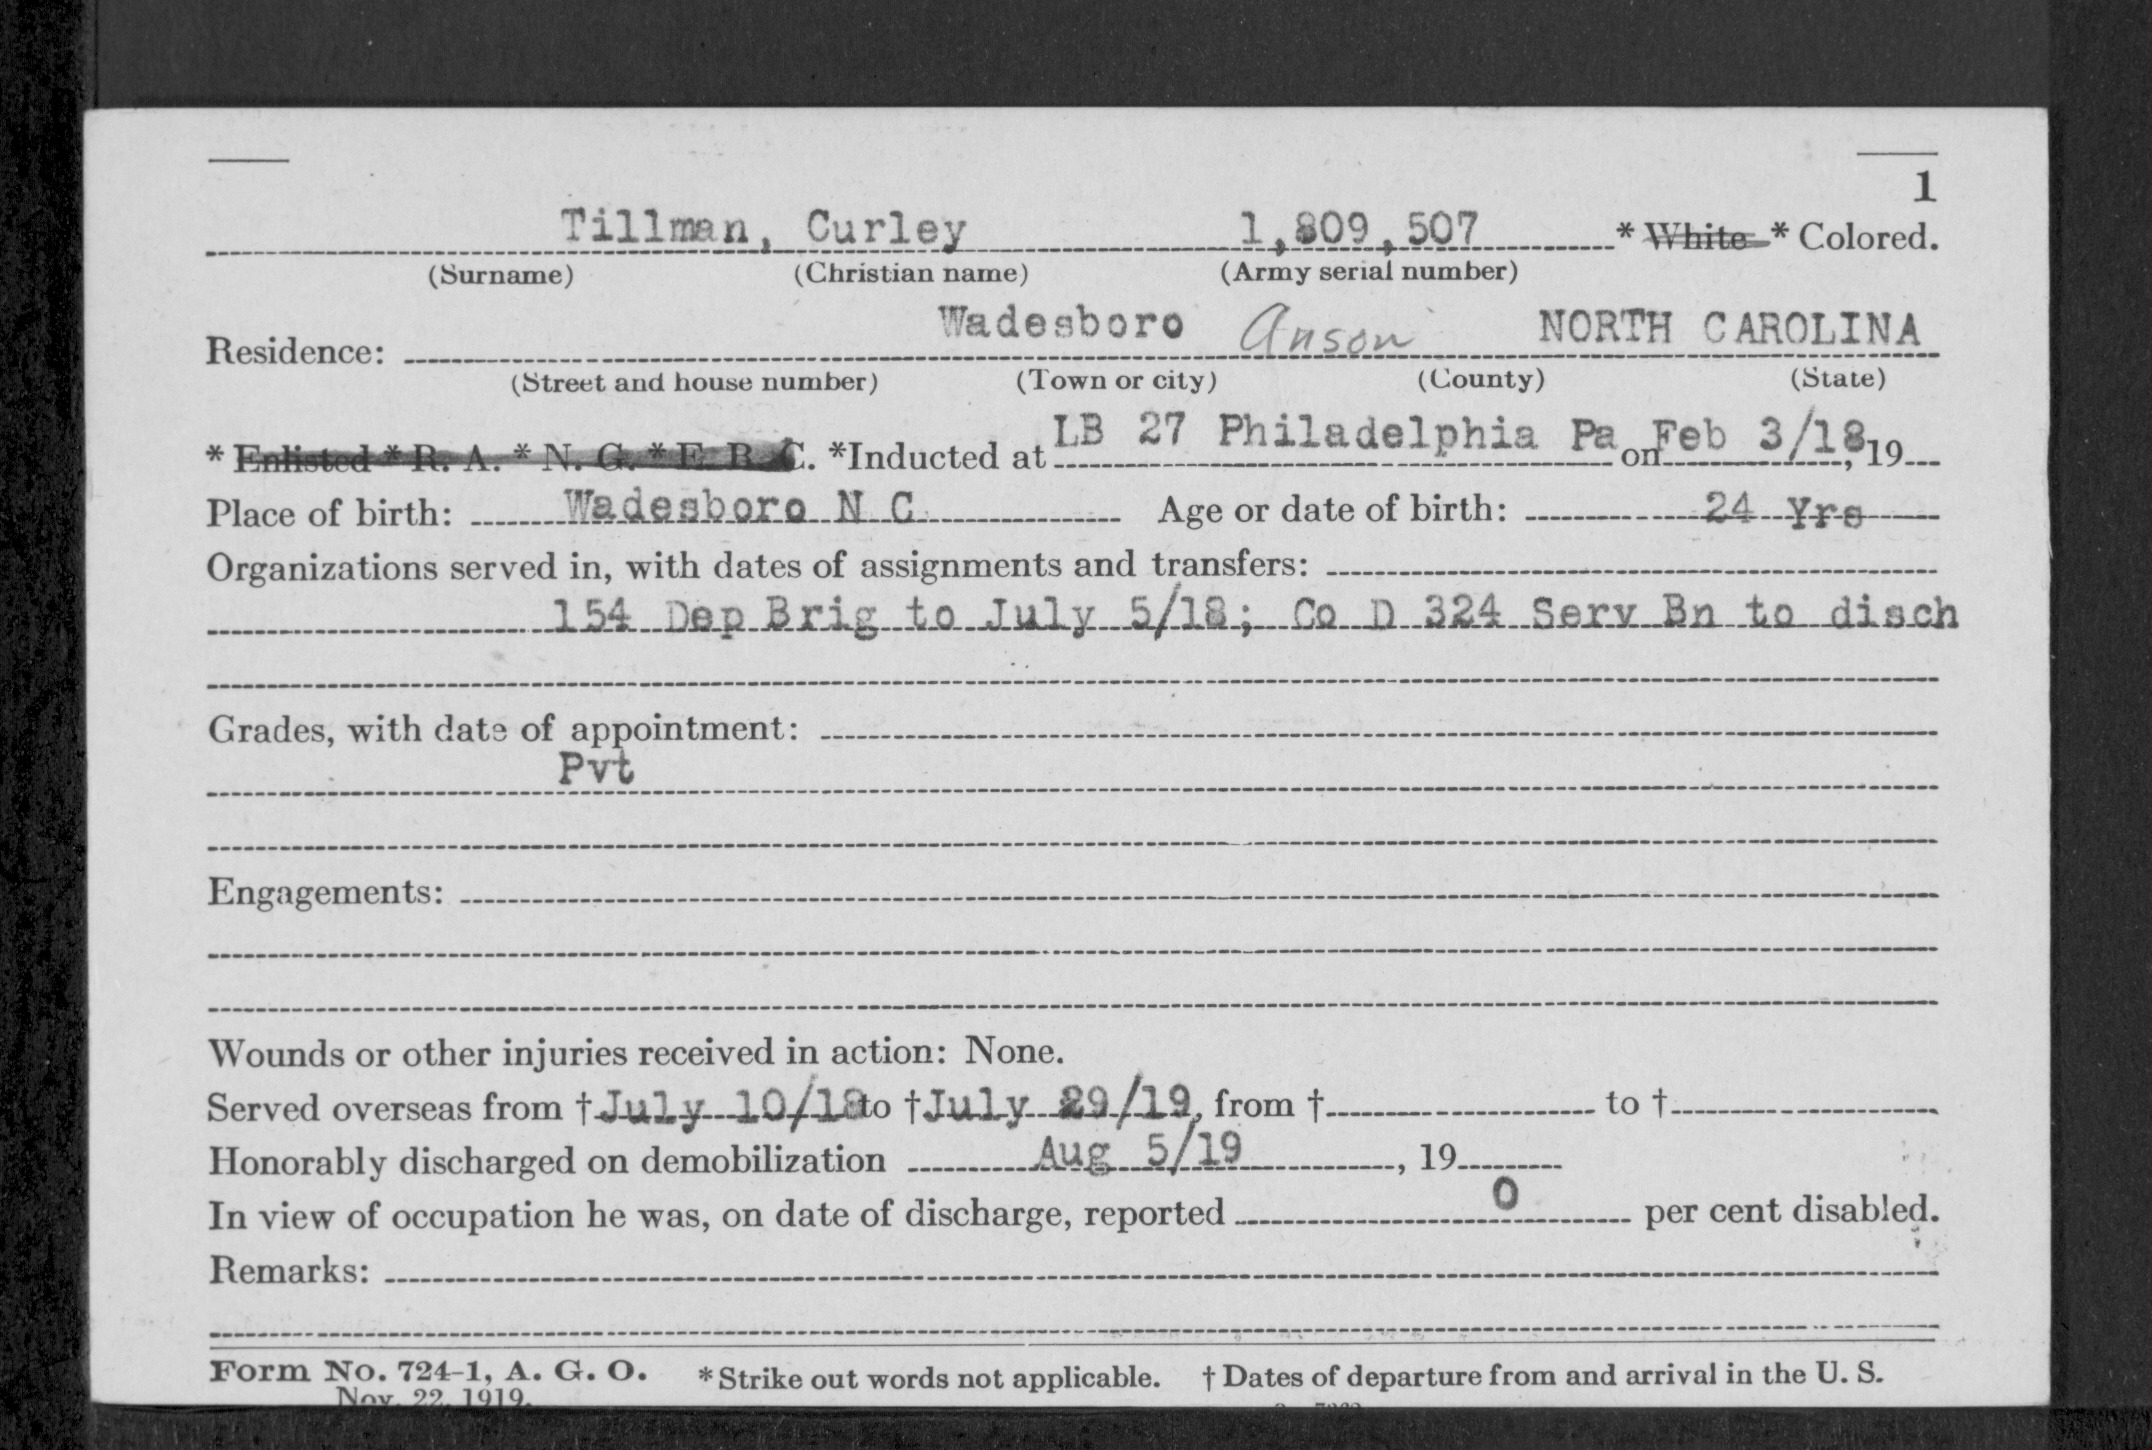 1
Tillman, Curley 1,809,507 * White * Colored.
(Surname) (Christian name) (Army serial number)
Residence: Wadesboro Anson NORTH CAROLINA
(Street and house number) (Town or city) (County) (State)
* Enlisted * R. A. * N. G. * E. R. C. *Inducted at LB 27 Philadelphia Pa on Feb 3/18, 19
Place of birth: Wadesboro N C Age or date of birth: 24 Yrs
Organizations served in, with dates of assignments and transfers:
154 Dep Brig to July 5/18; Co D 324 Serv Bn to disch
Grades, with date of appointment:
Pvt
Engagements:
Wounds or other injuries received in action: None.
Served overseas from † July 10/18 to † July 29/19, from † to †
Honorably discharged on demobilization Aug 5/19, 19
In view of occupation he was, on date of discharge, reported 0 per cent disabled.
Remarks:
Form No. 724-1, A. G. O. * Strike out words not applicable. † Dates of departure from and arrival in the U. S.
Nov. 22, 1919.